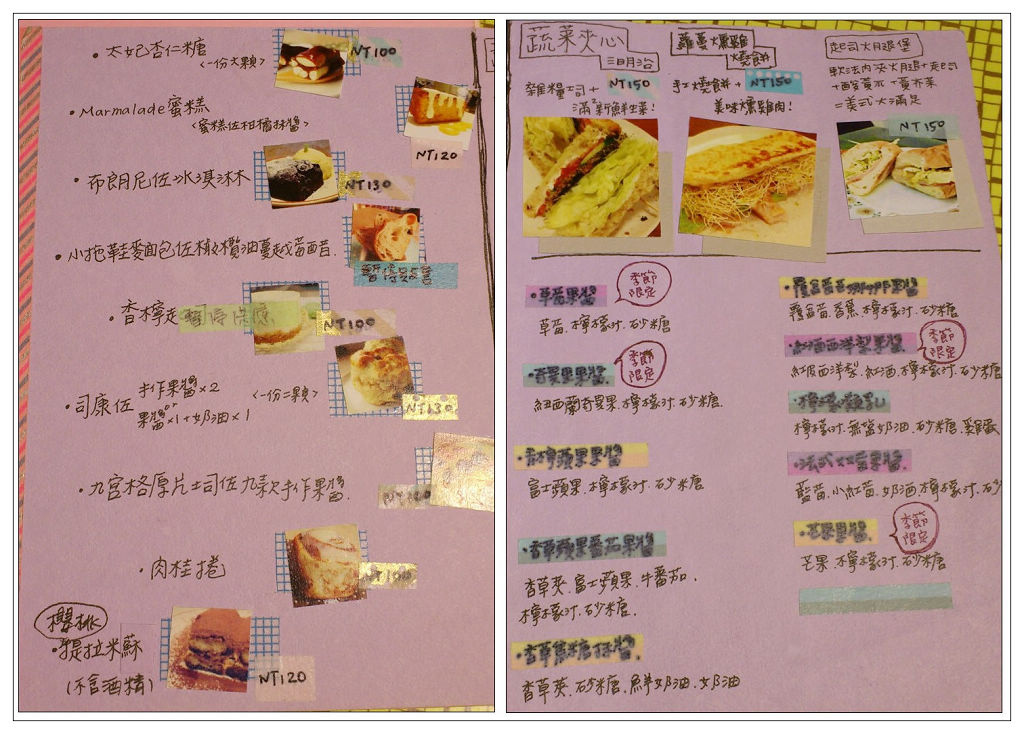 • 太妃杏仁糖
<一份六顆>
NT100
• Marmalade蜜糕
<蜜糕佐柑橘抹醬>
NT120
• 布朗尼佐冰淇淋
NT130
• 小拖鞋麵包佐橄欖油蔓越莓醋
暫停販售
• 香檸
NT100
• 司康佐
手作果醬×2
果醬×1+奶油×1
<一份二顆>
NT130
• 九宮格厚片吐司佐九款手作果醬.
• 肉桂捲
NT100
櫻桃
• 提拉米蘇
(不含酒精)
NT120
蔬菜夾心
三明治
雜糧吐司+
NT150
滿新鮮生菜!
蘿蔓燻雞
燒餅
手工燒餅+
NT150
美味燻雞肉!
起司火腿堡
軟法內夾火腿+起司
+酸黃瓜+黃芥末
=美式大滿足
NT150
• 草莓果醬
季節
限定
草莓.檸檬汁.砂糖
• 奇異果果醬.
季節
限定
紐西蘭奇異果.檸檬汁.砂糖.
• 香檸蘋果果醬
富士蘋果.檸檬汁.砂糖
• 香草蘋果番茄果醬
香草莢.富士蘋果.牛番茄.
檸檬汁.砂糖.
• 香草焦糖抹醬.
香草莢.砂糖.鮮奶油.奶油
覆盆莓.香蕉.檸檬汁.砂糖
• 紅酒西洋梨果醬.
季節
限定
紅皮西洋梨.紅酒.檸檬汁.砂糖
檸檬汁.無鹽奶油.砂糖.雞蛋
藍莓.小紅莓.奶酒.檸檬汁.砂
• 芒果果醬.
季節
限定
芒果.檸檬汁.砂糖